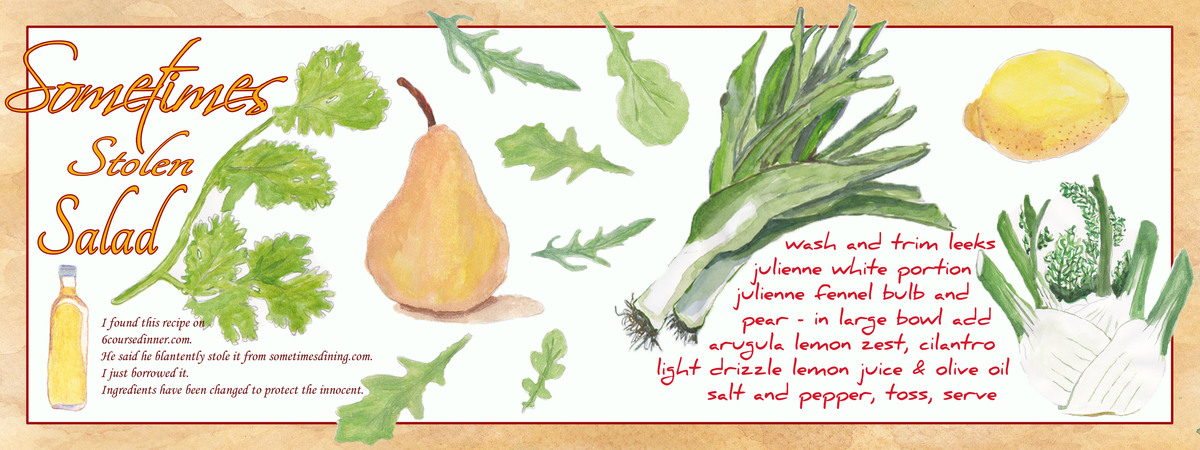 Sometimes
Stolen
Salad
I found this recipe on
6coursedinner.com.
He said he blantently stole it from sometimesdining.com.
I just borrowed it.
Ingredients have been changed to protect the innocent.
wash and trim leeks
julienne white portion
julienne fennel bulb and
pear - in large bowl add
arugula lemon zest, cilantro
light drizzle lemon juice & olive oil
salt and pepper, toss, serve